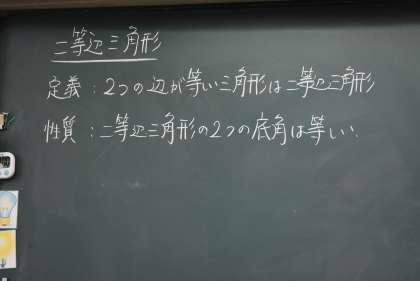 二等辺三角形
定義：2つの辺が等しい三角形は二等辺三角形
性質：二等辺三角形の2つの底角は等しい.